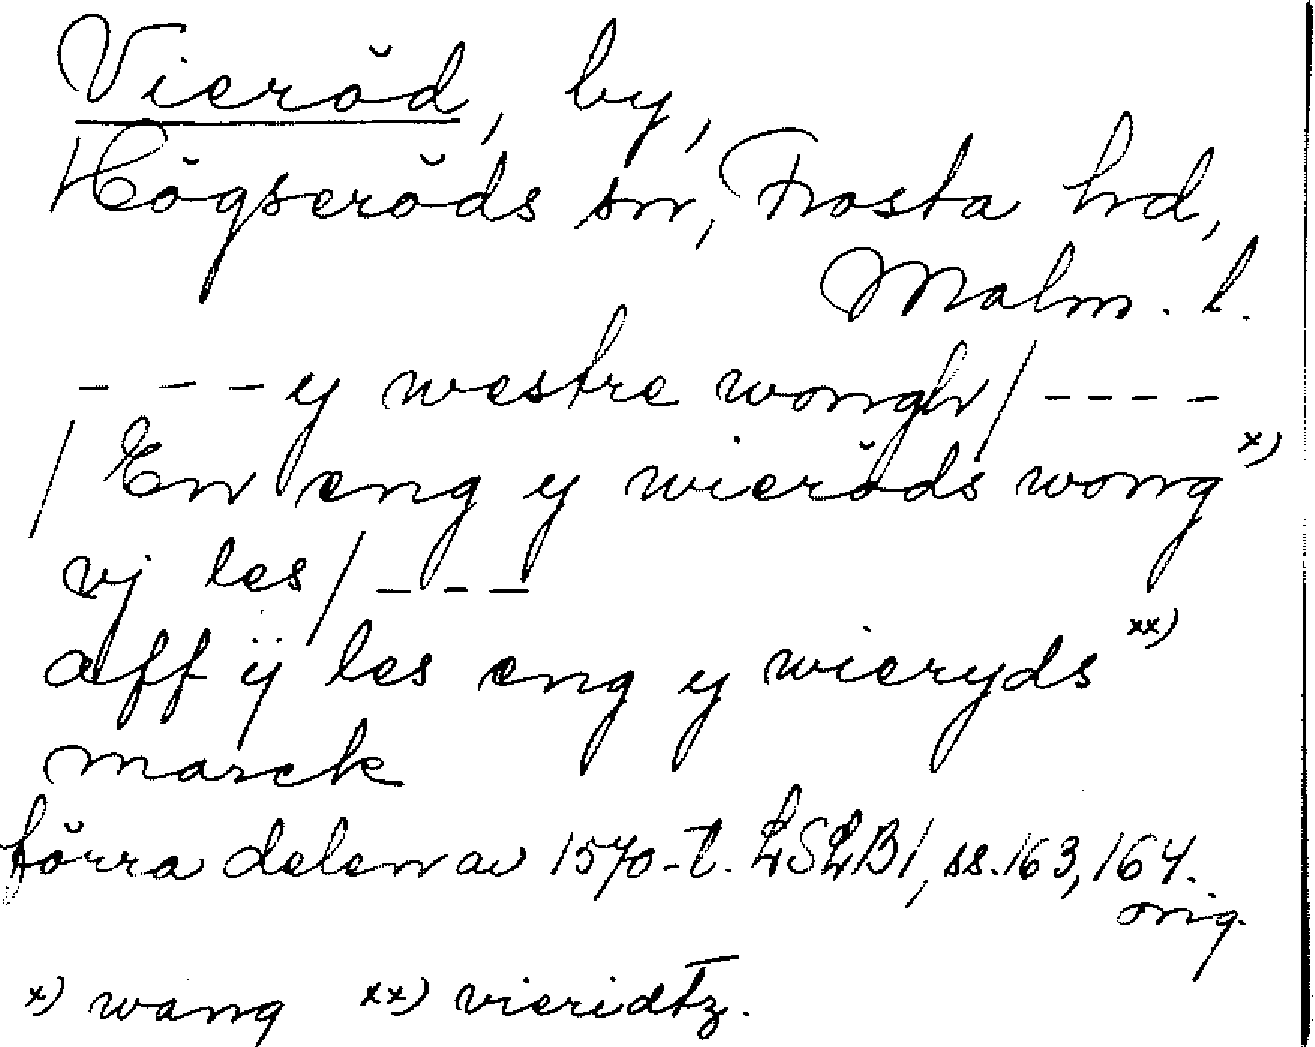 Vieröd, by,
Högseröds sn, Frosta hd,
Malm. l.
- - - y westre wongh / - - - -
/ En eng y wieröds wong x)
vj les / - - -
aff ij les eng y wieryds xx)
marck
förra delen av 1570-t. LSLB1, ss. 163, 164.
orig.
x) wang xx) vieridtz.